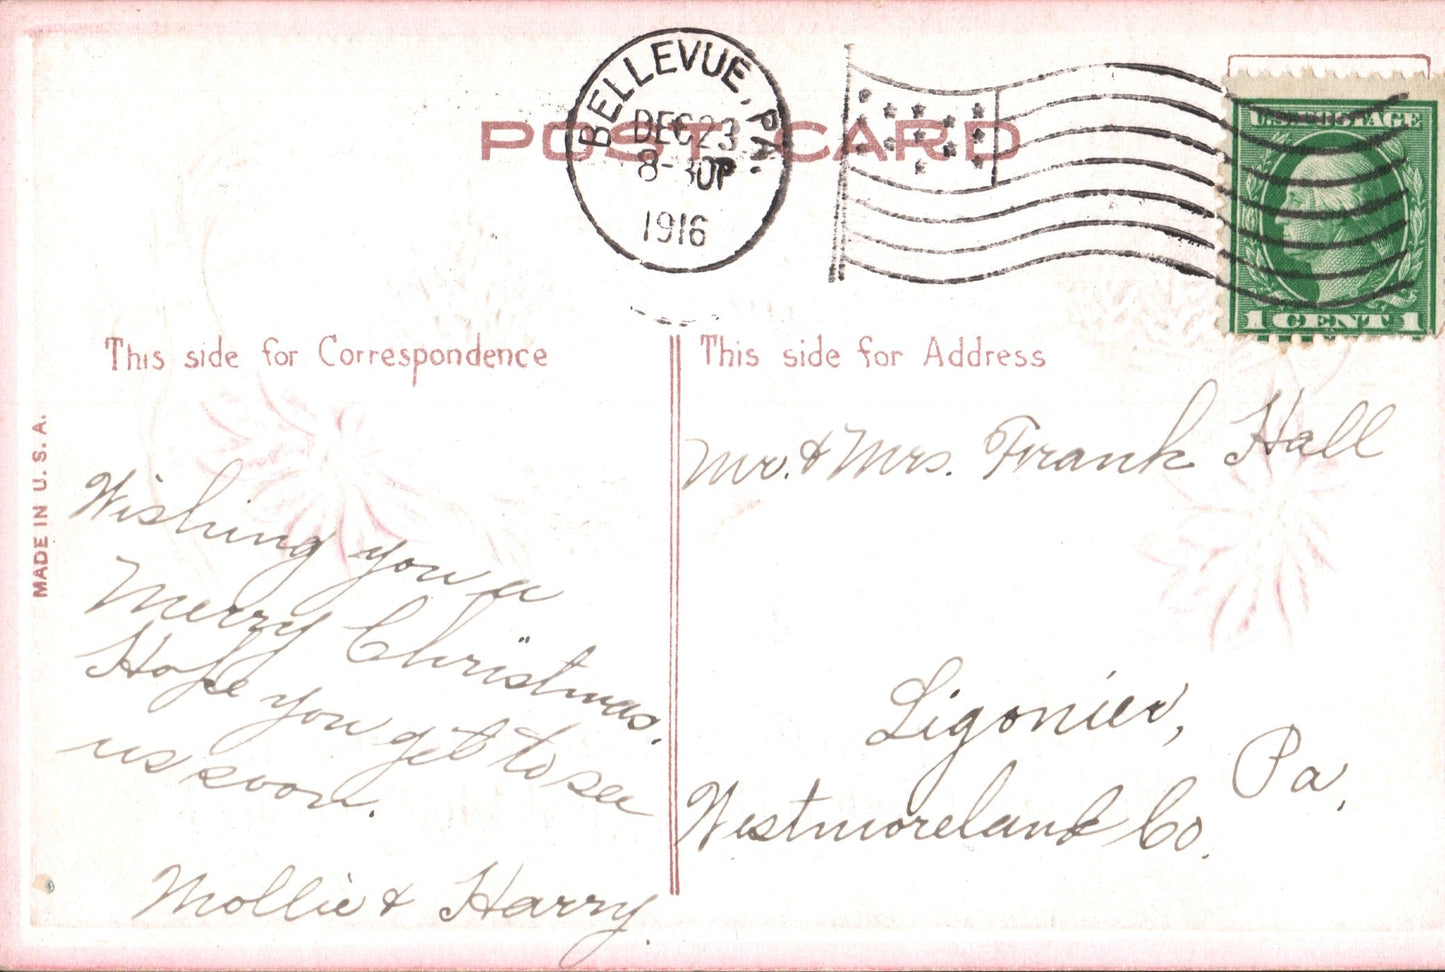 BELLEVUE, PA.
DEC 23
8-30P
1916
POST CARD
U.S. POSTAGE
1 CENT 1
This side for Correspondence
This side for Address
MADE IN U. S. A.
Wishing you a
Merry Christmas.
Hope you get to see
us soon.
Mollie & Harry
Mr. & Mrs. Frank Hall
Ligonier,
Pa,
Westmoreland Co.